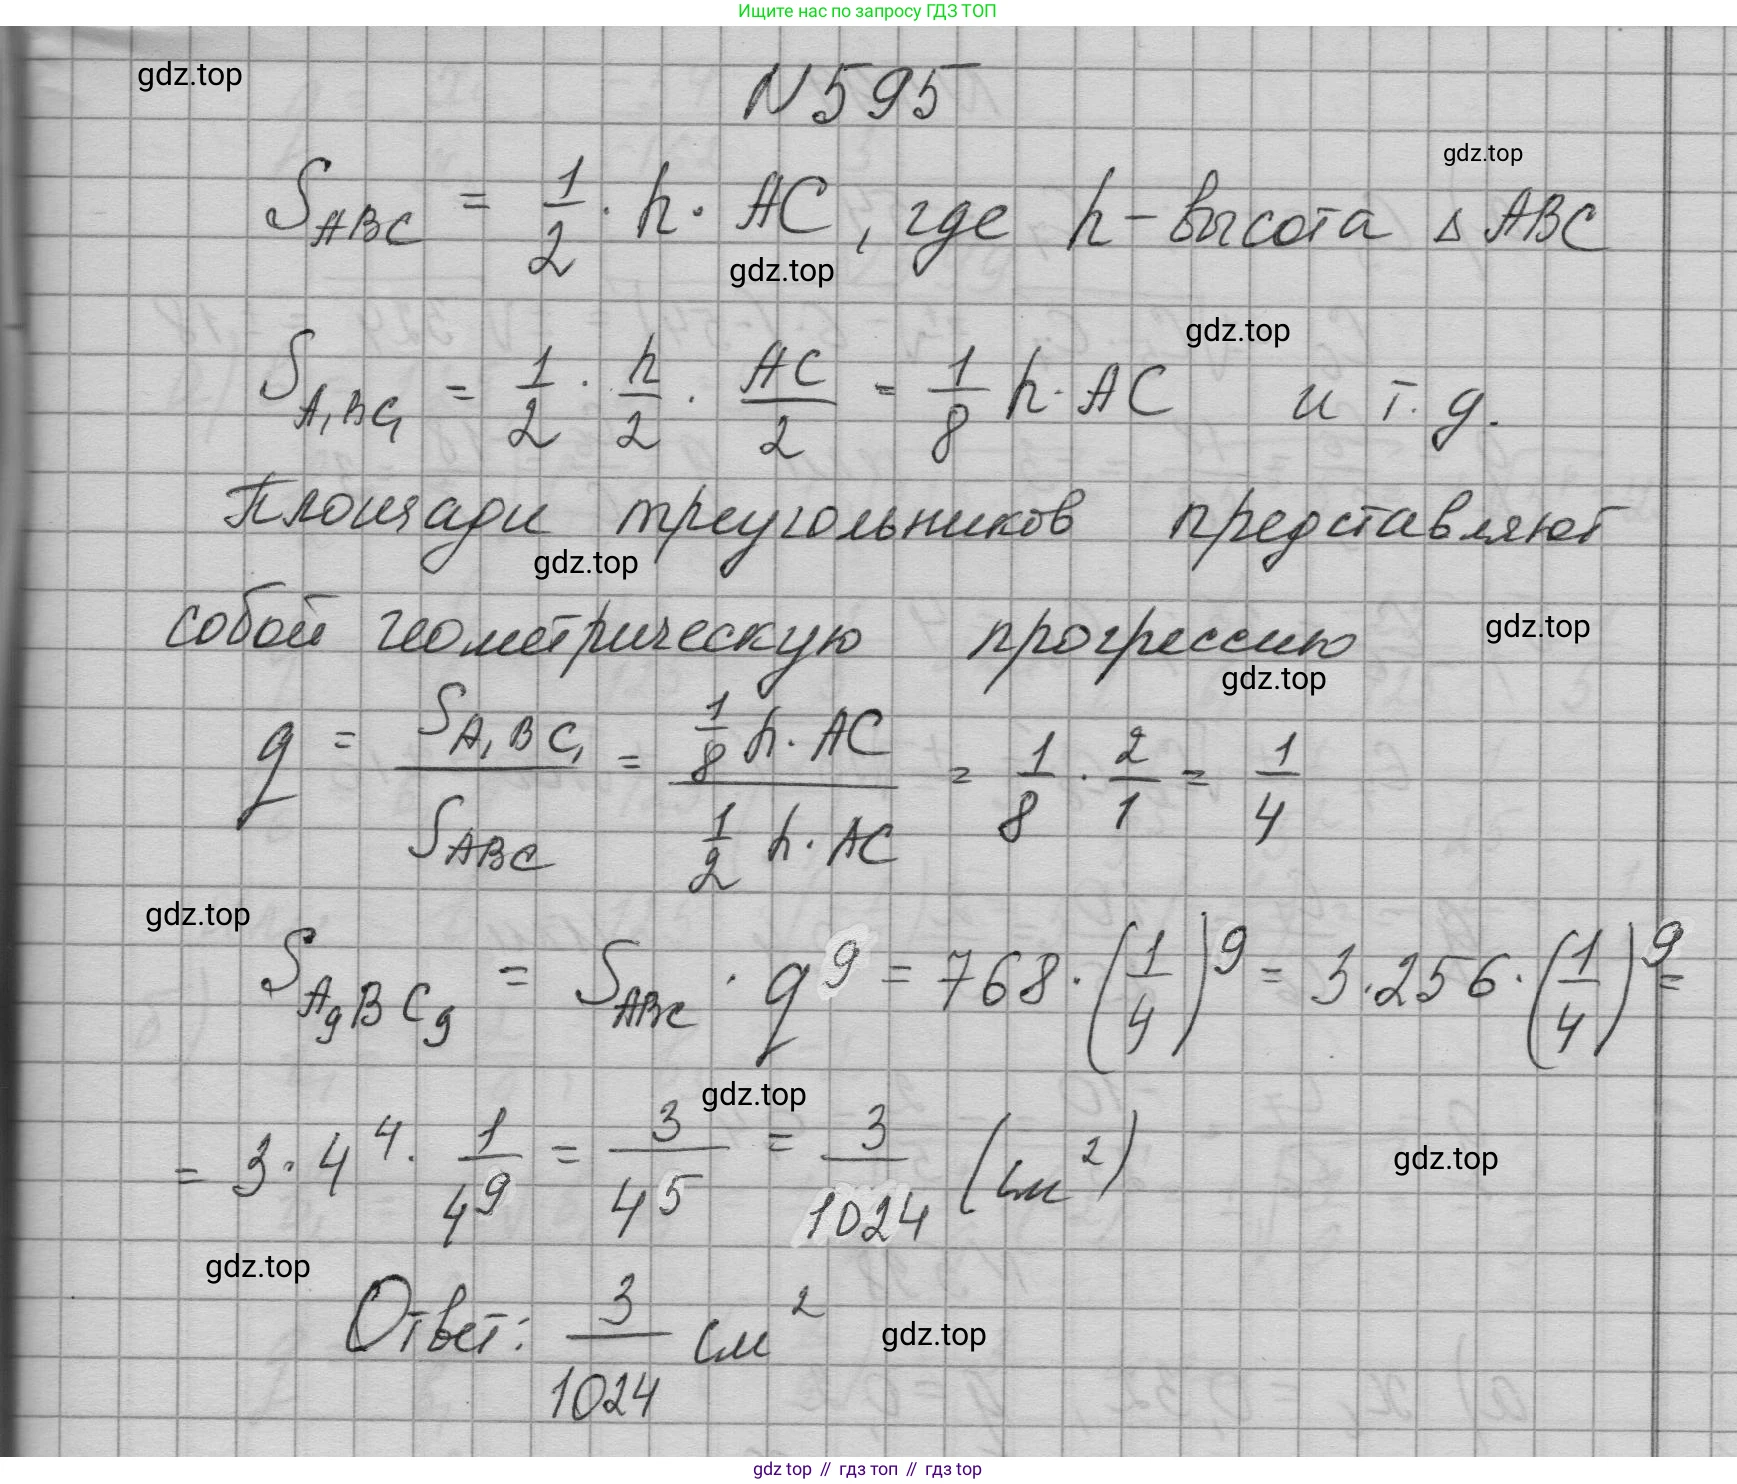 Ищите нас по запросу ГДЗ ТОП
gdz.top
N 595
gdz.top
S_ABC = 1/2 · h · AC, где h - высота △ ABC
gdz.top
gdz.top
S_A₁BC₁ = 1/2 · h/2 · AC/2 = 1/8 h · AC и т. д.
Площади треугольников представляют
gdz.top
собой геометрическую прогрессию
gdz.top
gdz.top
q = S_A₁BC₁ / S_ABC = (1/8 h · AC) / (1/2 h · AC) = 1/8 · 2/1 = 1/4
gdz.top
S_A₉BC₉ = S_ABC · q⁹ = 768 · (1/4)⁹ = 3 · 256 · (1/4)⁹ =
gdz.top
= 3 · 4⁴ · 1/4⁹ = 3/4⁵ = 3/1024 (см²)
gdz.top
gdz.top
Ответ: 3/1024 см²
gdz.top
gdz top // гдз топ // гдз top